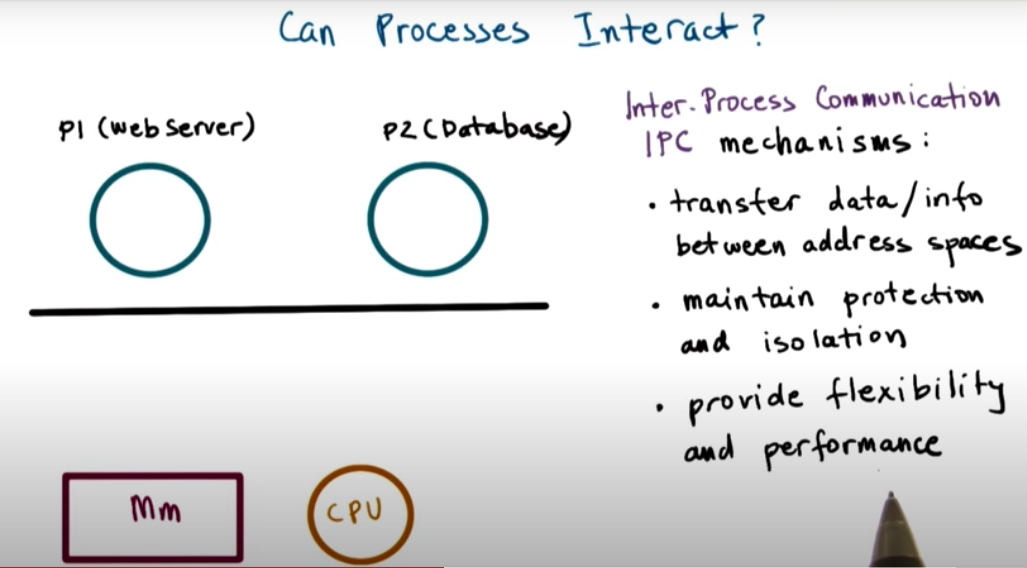 Can Processes Interact?
P1 (Web Server)
P2 (Database)
Inter-Process Communication
IPC mechanisms:
• transfer data/info
between address spaces
• maintain protection
and isolation
• provide flexibility
and performance
Mm
CPU